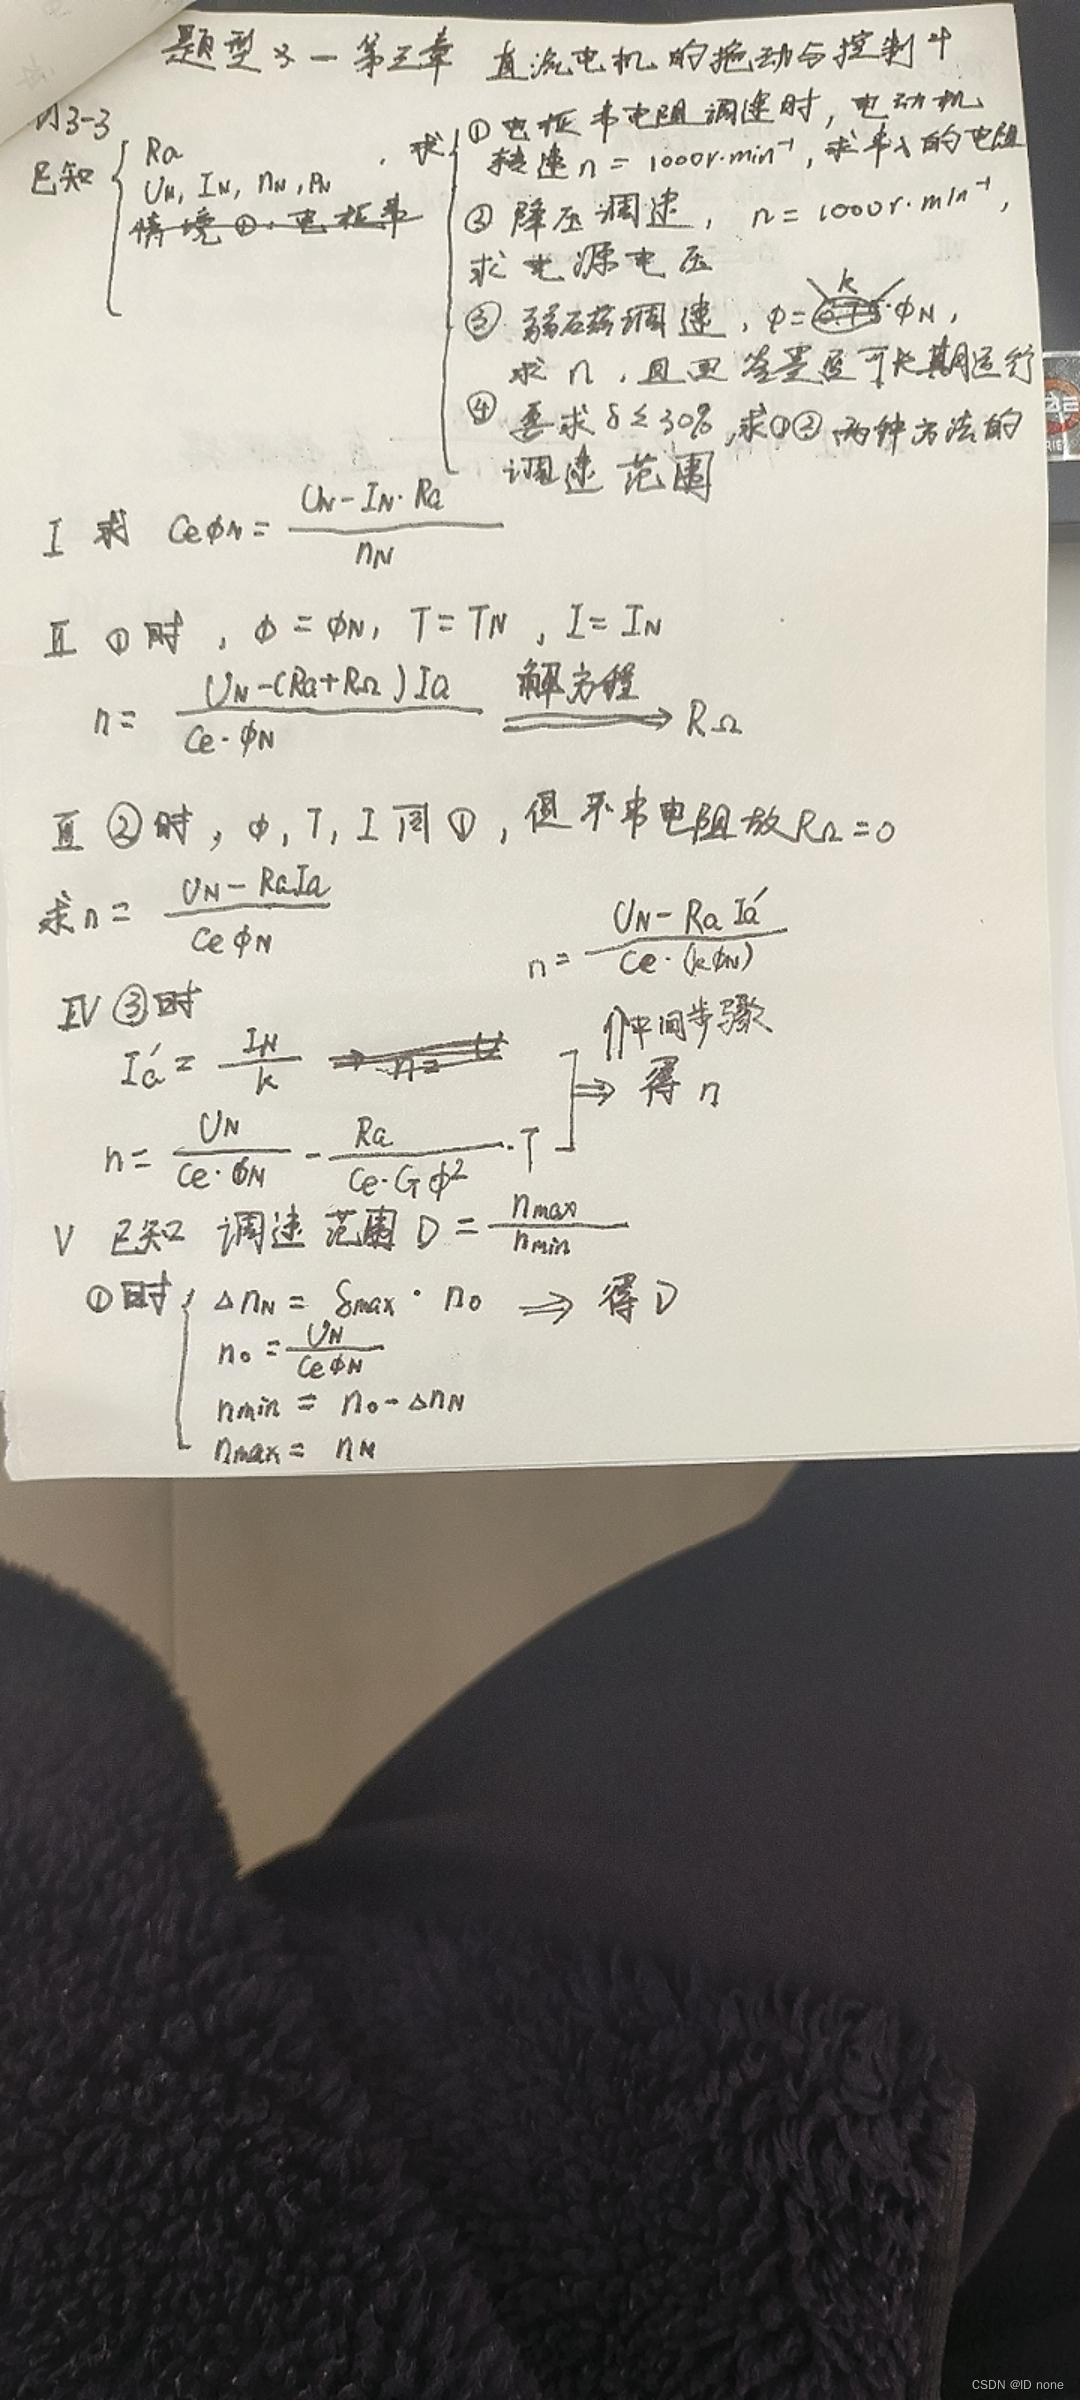 题型3一第三章 直流电机的拖动与控制4
例3-3
已知 { Ra
UN, IN, nN, PN
情境①·电枢串
, 求 { ① 电枢串电阻调速时, 电动机
转速n=1000r·min⁻¹, 求串入的电阻
② 降压调速, n=1000r·min⁻¹,
求电源电压
③ 弱磁调速, φ=k·φN,
求n, 且回答是否可长期运行
④ 要求δ≤30%, 求①②两种方法的
调速范围
I 求 CeφN = (UN-IN·Ra)/nN
II ①时, φ=φN, T=TN, I=IN
n= (UN-(Ra+RΩ)Ia)/(Ce·φN) 解方程⟹ RΩ
III ②时, φ, T, I同①, 但不串电阻故RΩ=0
求n= (UN-RaIa)/(CeφN)
n= (UN-Ra Ia')/(Ce·(kφN))
IV ③时
⇑中间步骤
Ia'= IN/k ⇒ n= U
⇒ 得n
n= UN/(Ce·φN) - Ra/(Ce·Gφ²)·T
V 已知 调速范围D= nmax/nmin
①时 { ΔnN = δmax·n0 ⇒ 得D
n0 = UN/(CeφN)
nmin = n0-ΔnN
nmax = nN
CSDN @ID none